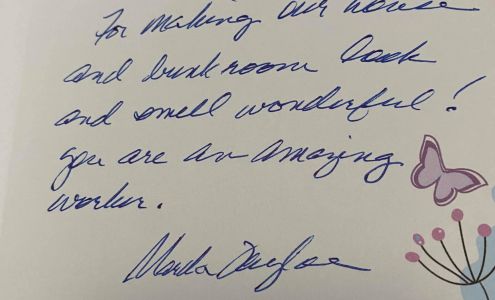 For making our house
and bunkroom look
and smell wonderful!
you are an amazing
worker.